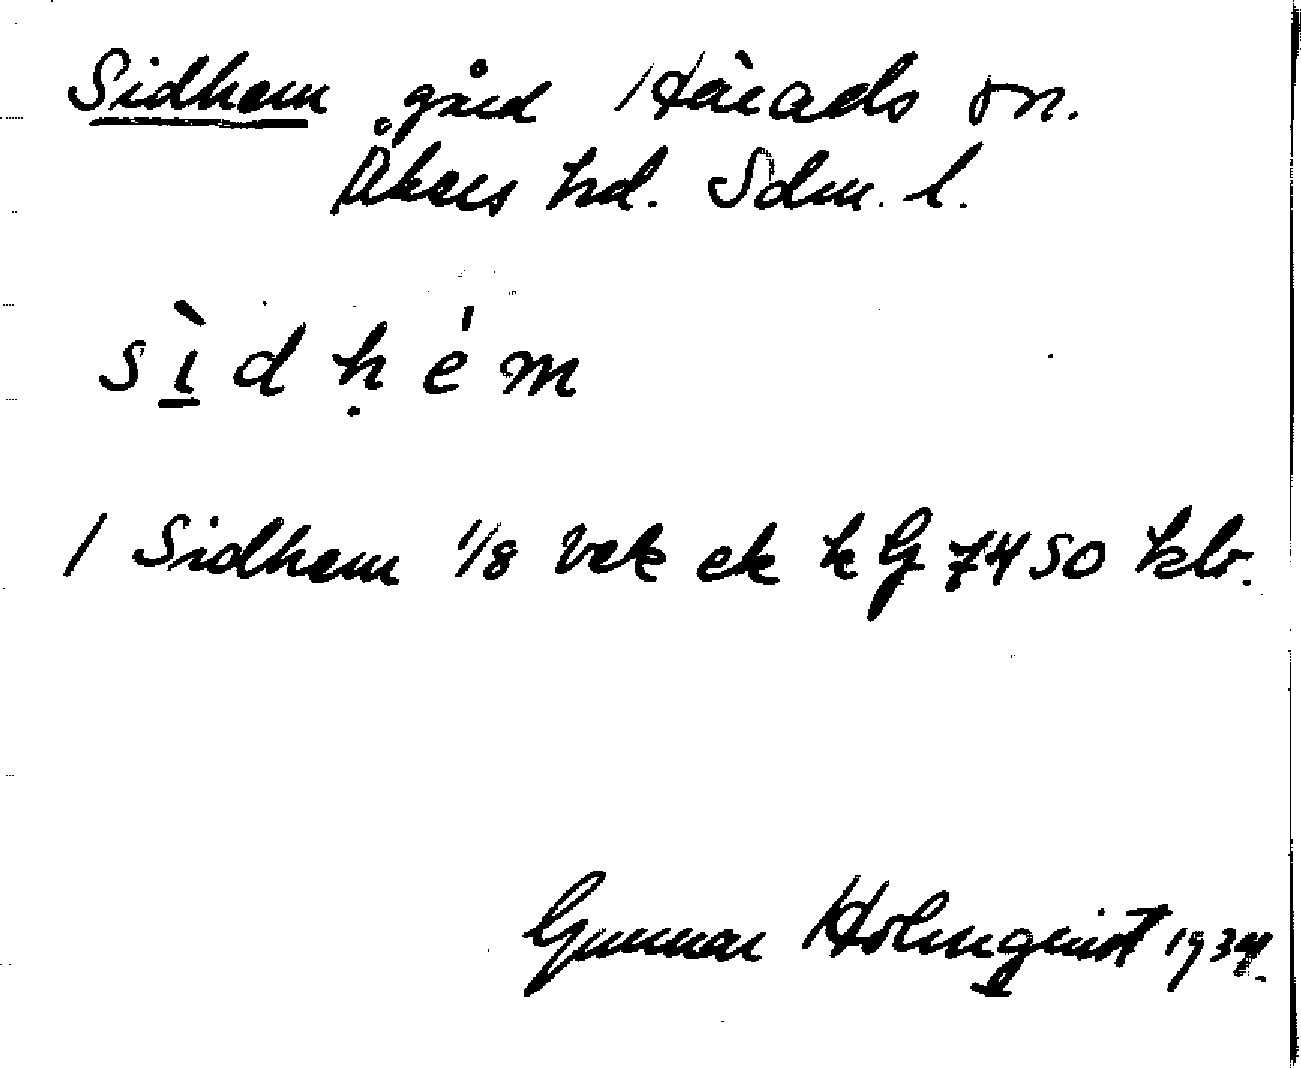 Sidhem gård Härads sn.
Åkers hd. Sdm. l.
sìdhém
1 Sidhem 1/8 vek ek h G 7450 kb.
Gunnar Holmqvist 1934.